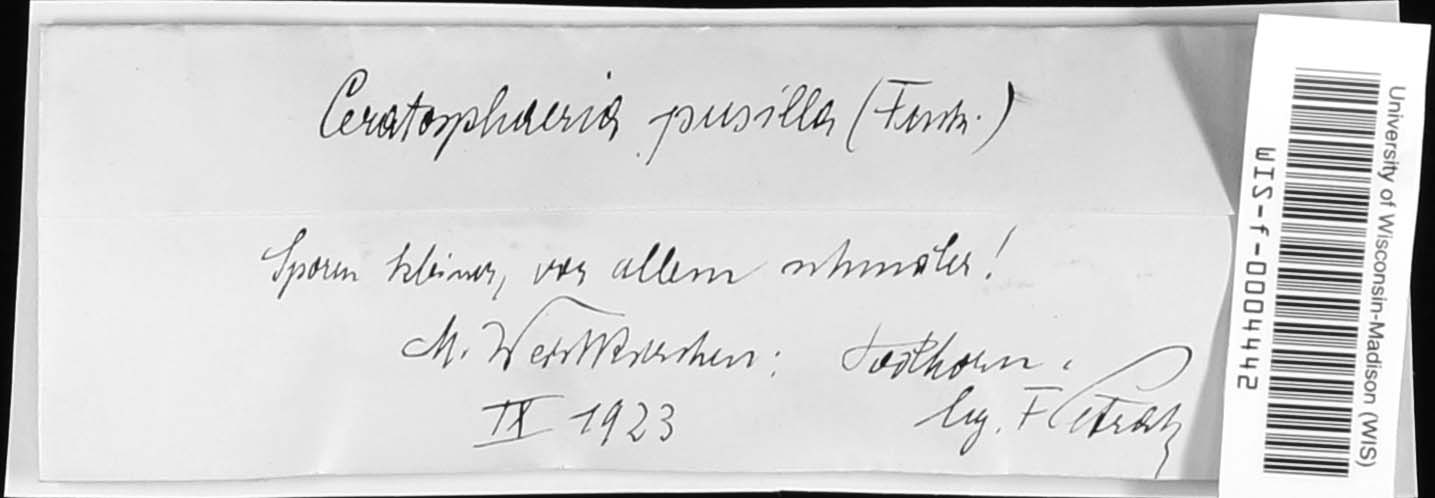 Ceratosphaeria pusilla (Fuck.)
Sporen kleiner, vor allem schmäler!
M. Weisskirchen: Podhorn.
IX 1923
leg. F Petrak
University of Wisconsin-Madison (WIS)
WIS-f-0004442